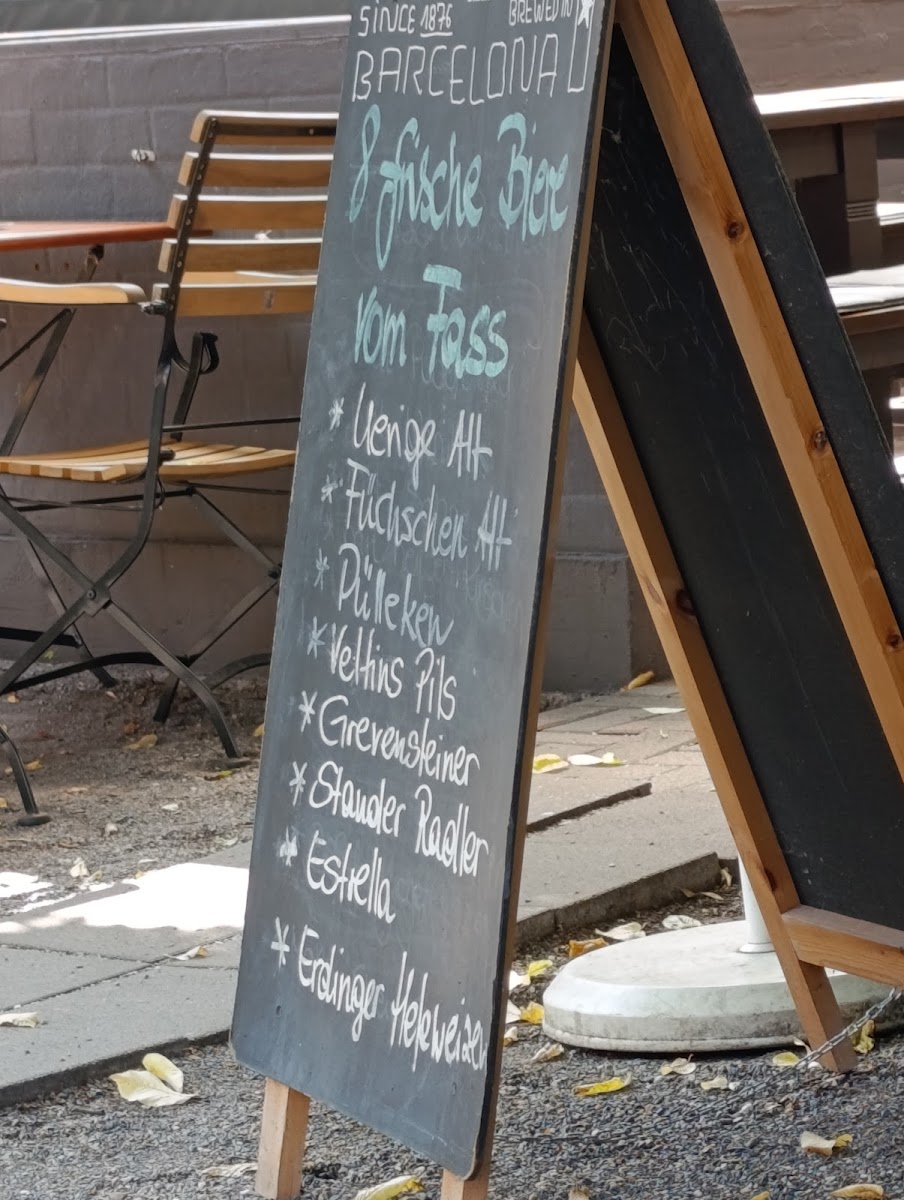 SINCE 1876 BREWED IN
BARCELONA
8 frische Biere
vom Fass
* Uerige Alt
* Füchschen Alt
* Pülleken
* Veltins Pils
* Grevensteiner
* Stauder Radler
* Estrella
* Erdinger Hefeweizen